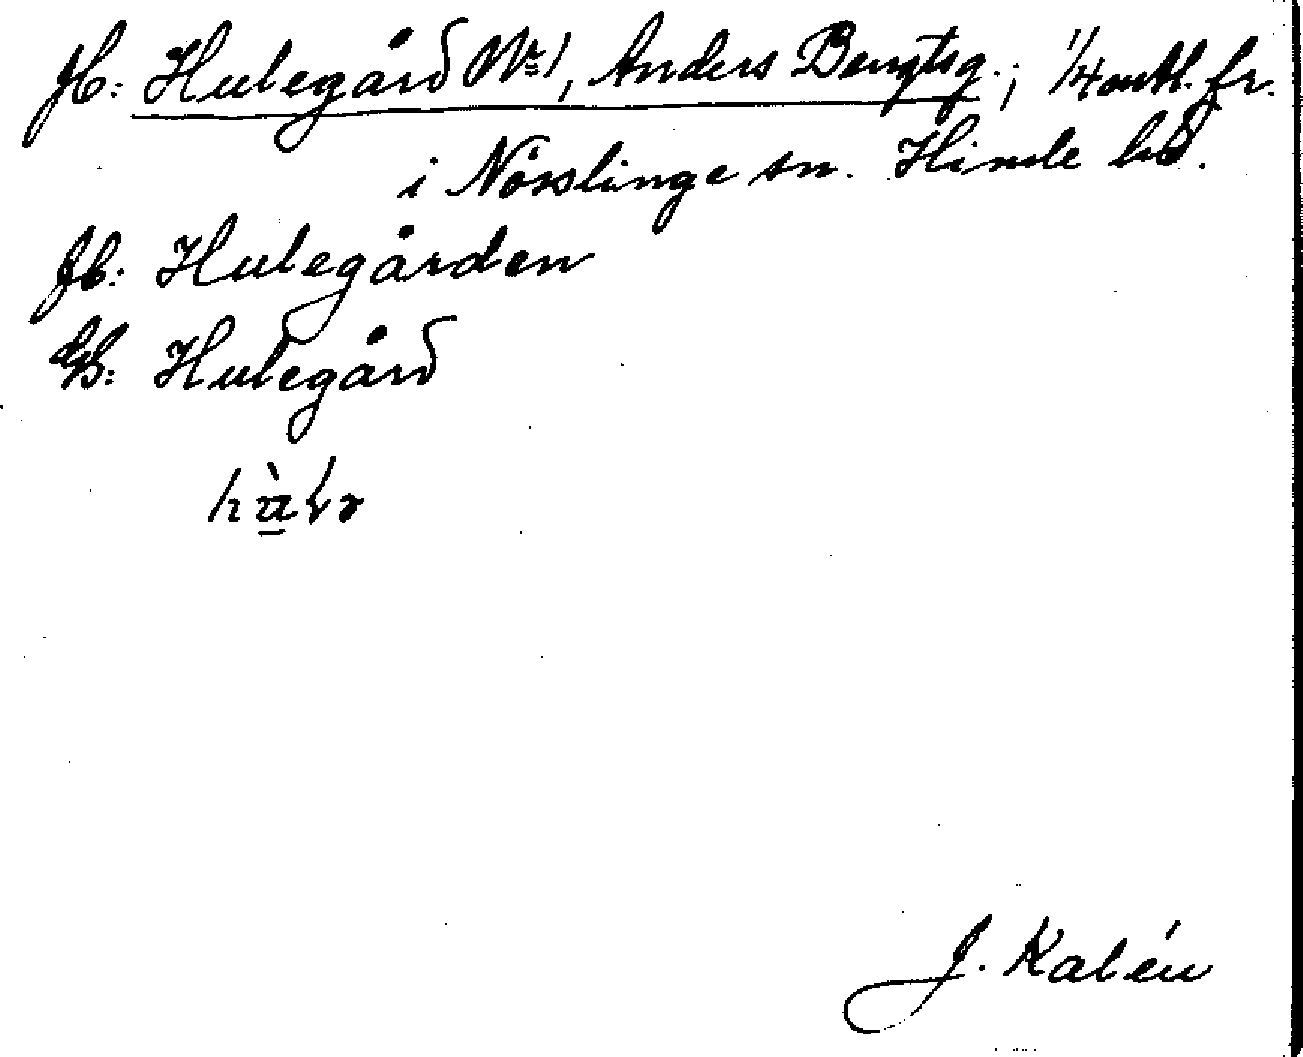 Jb: Hulegård No 1, Anders Bengtsg.; 1/4 mtl. fr.
i Nösslinge sn. Himle hd.
Jb: Hulegården
Gb: Hulegård
J. Kalén